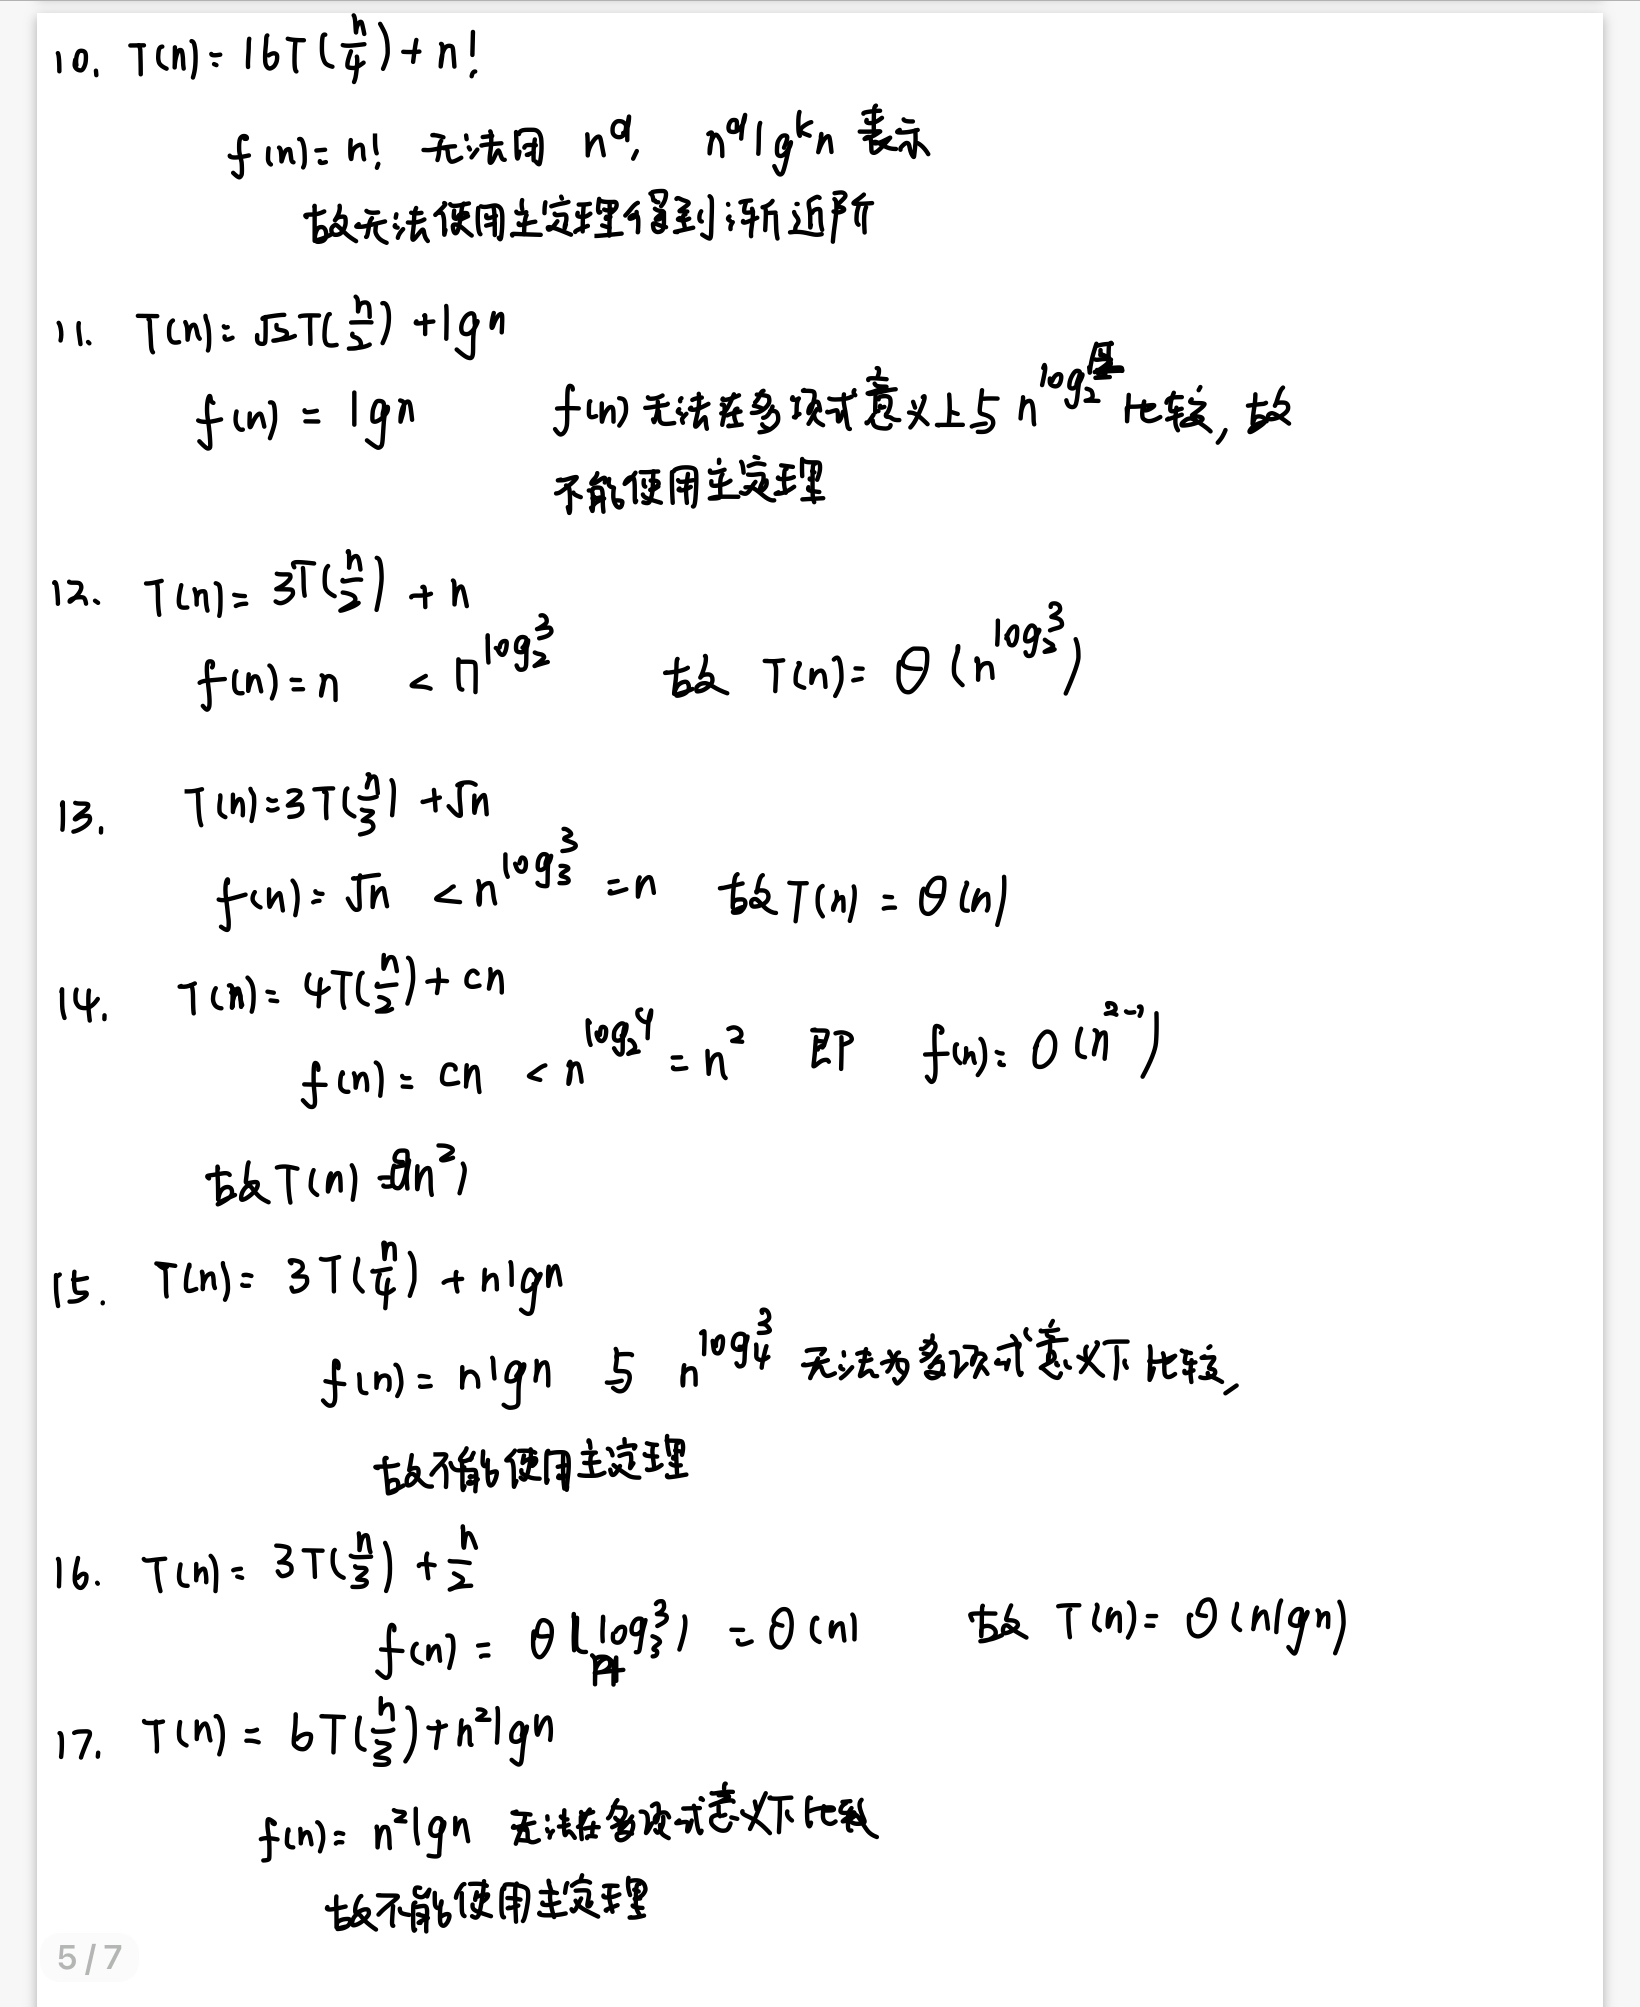 10. T(n) = 16T(n/4) + n!
f(n) = n! 无法用 n^d, n^d lg^k n 表示
故无法使用主定理得到渐近阶
11. T(n) = √2T(n/2) + lgn
f(n) = lgn f(n) 无法在多项式意义上与 n^log₂ 比较, 故
不能使用主定理
12. T(n) = 3T(n/2) + n
f(n) = n < n^log₂3 故 T(n) = θ(n^log₂3)
13. T(n) = 3T(n/3) + √n
f(n) = √n < n^log₃3 = n 故 T(n) = θ(n)
14. T(n) = 4T(n/2) + cn
f(n) = cn < n^log₂4 = n² 即 f(n) = O(n^2-1)
故 T(n) = θ(n²)
15. T(n) = 3T(n/4) + nlgn
f(n) = nlgn 与 n^log₄3 无法为多项式意义下比较,
故不能使用主定理
16. T(n) = 3T(n/3) + n/2
f(n) = θ(n^log₃3) = θ(n) 故 T(n) = θ(nlgn)
17. T(n) = 6T(n/3) + n²lgn
f(n) = n²lgn 无法在多项式意义下比较
故不能使用主定理
5 / 7